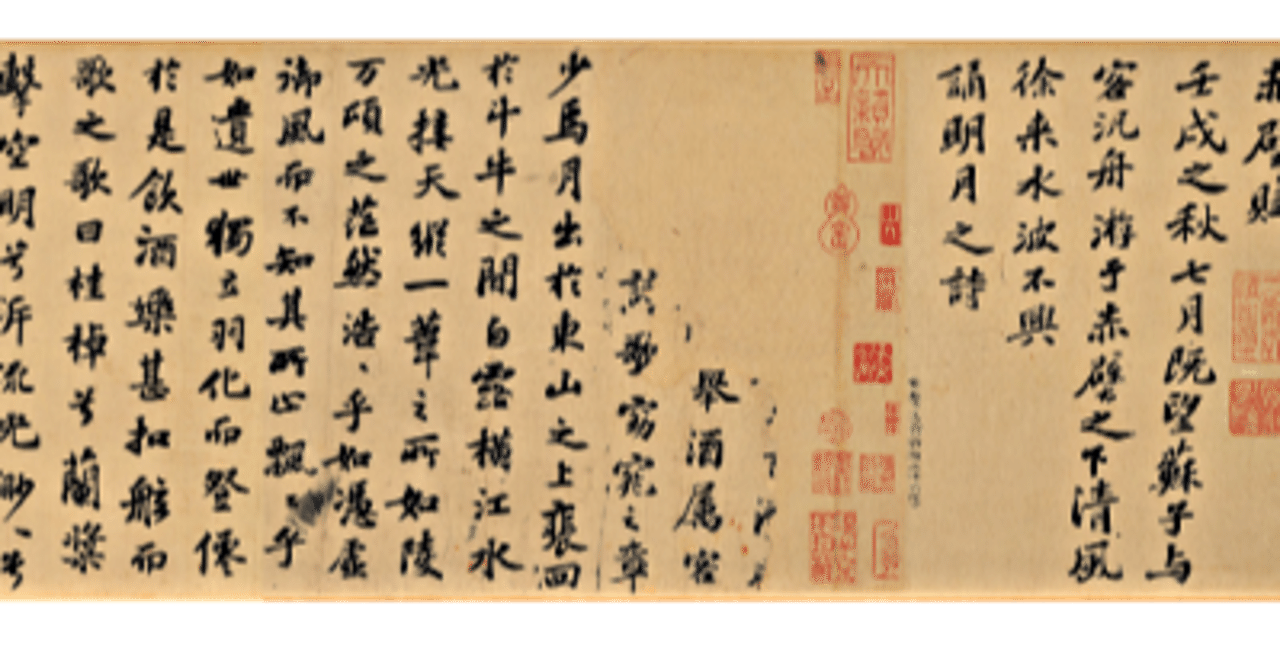 赤壁賦
壬戌之秋七月既望蘇子与
客汎舟游于赤壁之下清風
徐来水波不興
舉酒属客
誦明月之詩
歌窈窕之章
少焉月出於東山之上裵回
於斗牛之間白露横江水
光接天縱一葦之所如陵
万頃之茫然浩〻乎如憑虚
御風而不知其所止飄〻乎
如遺世獨立羽化而登僊
於是飲酒樂甚扣舷而
歌之歌曰桂棹兮蘭槳
擊空明兮泝流光渺〻兮